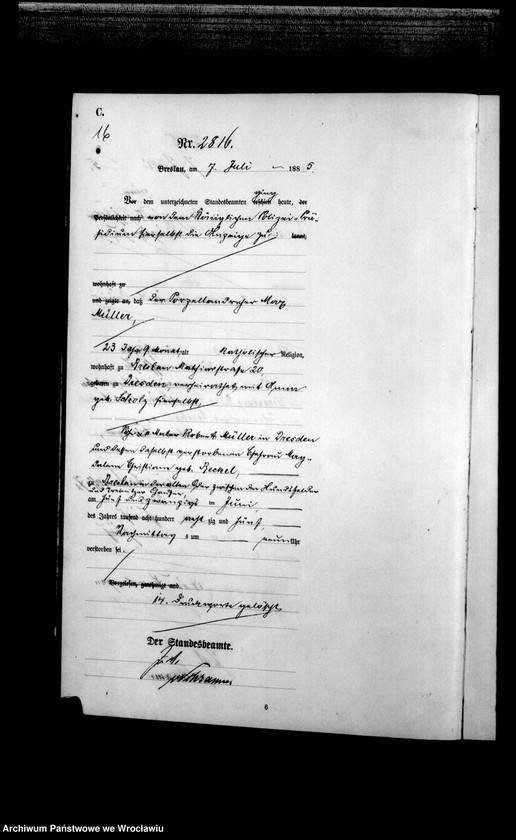 C.
16
Nr. 2816.
Breslau, am 7. Juli 1885.
Vor dem unterzeichneten Standesbeamten erschien ging heute, der
Persönlichkeit nach von dem Königlichen Polizei-Prä-
sidium hierselbst die Anzeige zu: kannt,
wohnhaft zu
und zeigte an, daß der Porzellandreher Max
Müller,
23 Jahr 9 Monat alt Katholischer Religion,
wohnhaft zu Breslau Mathiasstraße 20,
geboren zu Dresden, verheirathet mit Anna
geb. Scholz hierselbst,
Maler Robert Müller in Dresden
und dessen daselbst verstorbenen Ehefrau Mag-
dalene Christiane geb.
zu Breslau in der alten Oder zwischen der Hundsfelder
und
am fünf und zwanzigsten Juni,
des Jahres tausend acht hundert acht zig und fünf,
Nachmittag s um neun Uhr
verstorben sei.
Vorgelesen, genehmigt und
14. Druckworte gelöscht.
Der Standesbeamte.
6
Archiwum Państwowe we Wrocławiu